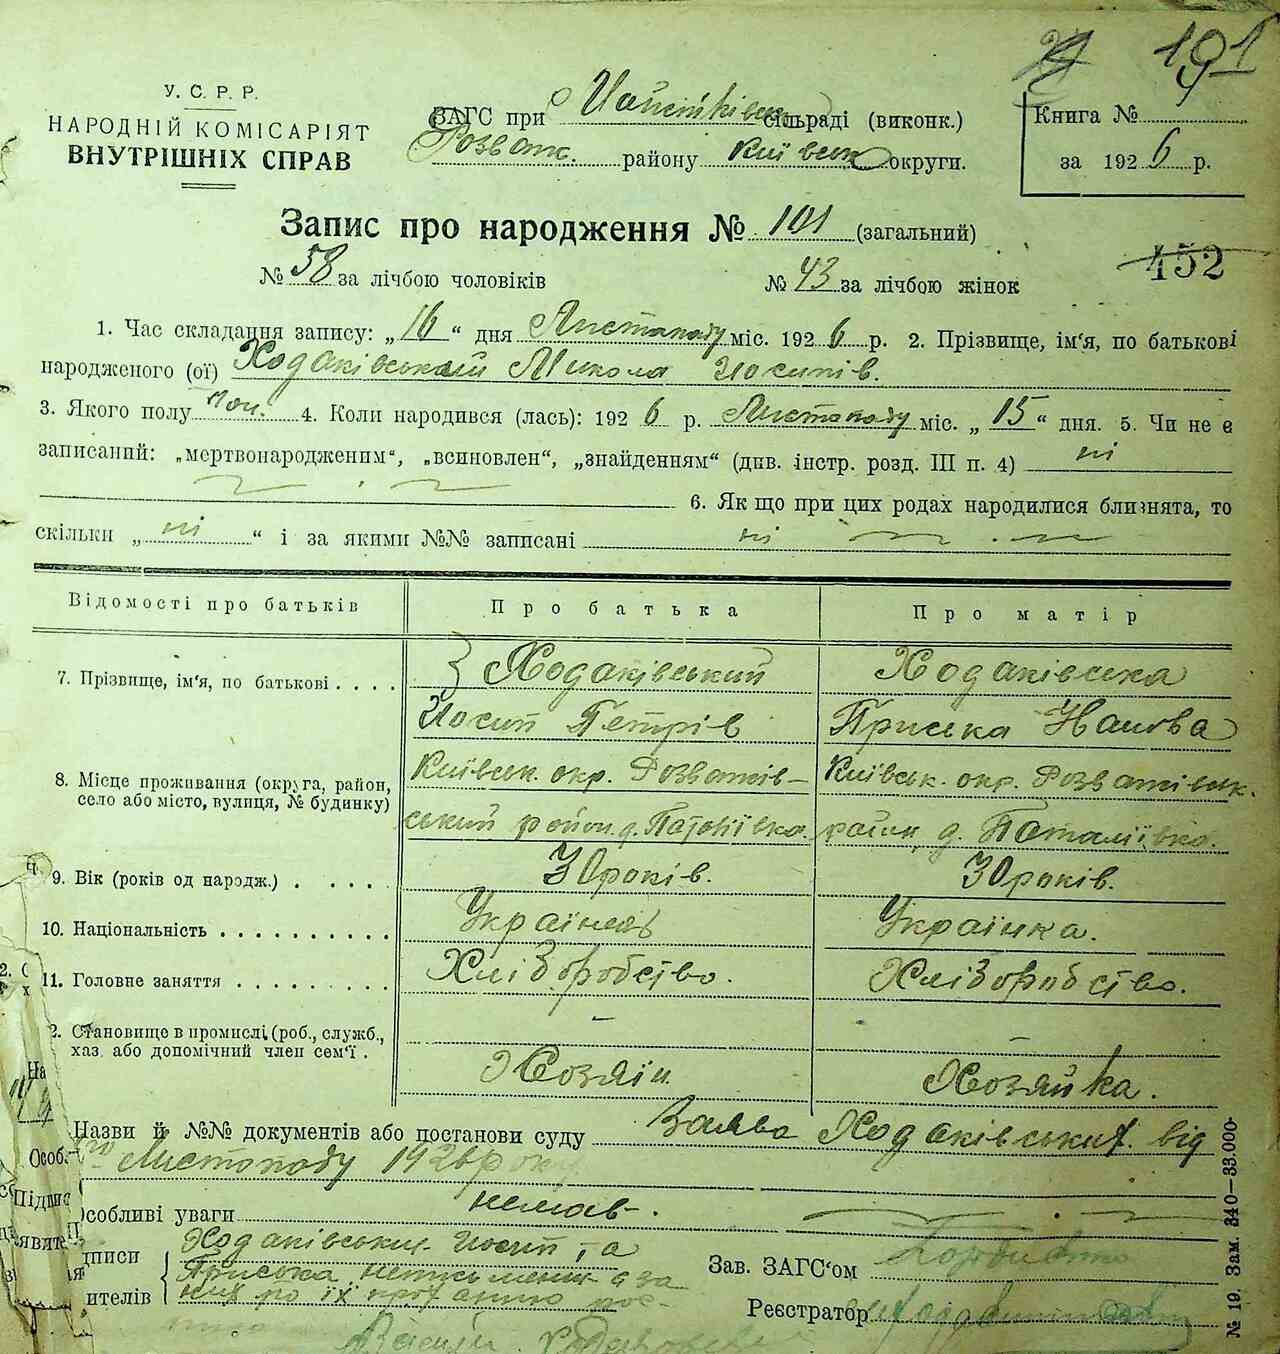 191
У. С. Р. Р.
НАРОДНІЙ КОМІСАРІЯТ
ВНУТРІШНІХ СПРАВ
ЗАГС при сільраді (виконк.)
Розваж. району Київськ округи.
Книга №
за 1926 р.
Запис про народження № 101 (загальний)
№ 58 за лічбою чоловіків № 43 за лічбою жінок
452
1. Час складання запису: „16“ дня Листопаду міс. 1926 р. 2. Прізвище, ім'я, по батькові
народженого (ої) Ходаківський Микола Иосипів.
3. Якого полу чол. 4. Коли народився (лась): 1926 р. Листопаду міс. „15“ дня. 5. Чи не є
записаний: „мертвонародженим“, „всиновлен“, „знайденням“ (див. інстр. розд. III п. 4) ні
6. Як що при цих родах народилися близнята, то
скільки „ні“ і за якими №№ записані ні
Відомості про батьків Про батька Про матір
7. Прізвище, ім'я, по батькові . . . . Ходаківський Ходаківська
Иосип Петрів Приська Йванова
8. Місце проживання (округа, район, Київськ. окр. Розважів- Київськ. окр. Розважівськ.
село або місто, вулиця, № будинку) ський район. д. район, д.
9. Вік (років од народж.) . . . . . 30 років. 30 років.
10. Національність . . . . . . . . . . Українець Українка.
11. Головне заняття . . . . . . . . . Хліборобство. Хліборобство.
2. Становище в промислі (роб., служб., – –
хаз. або допомічний член сем'ї . Хозяін. Хозяйка.
Назви й №№ документів або постанови суду Заява Ходаківських від
Листопаду 1926 року
Особливі уваги немає.
Ходаківськи Иосип та
Приська
Зав. ЗАГС'ом
Реєстратор
№ 19. Зам. 340—33.000